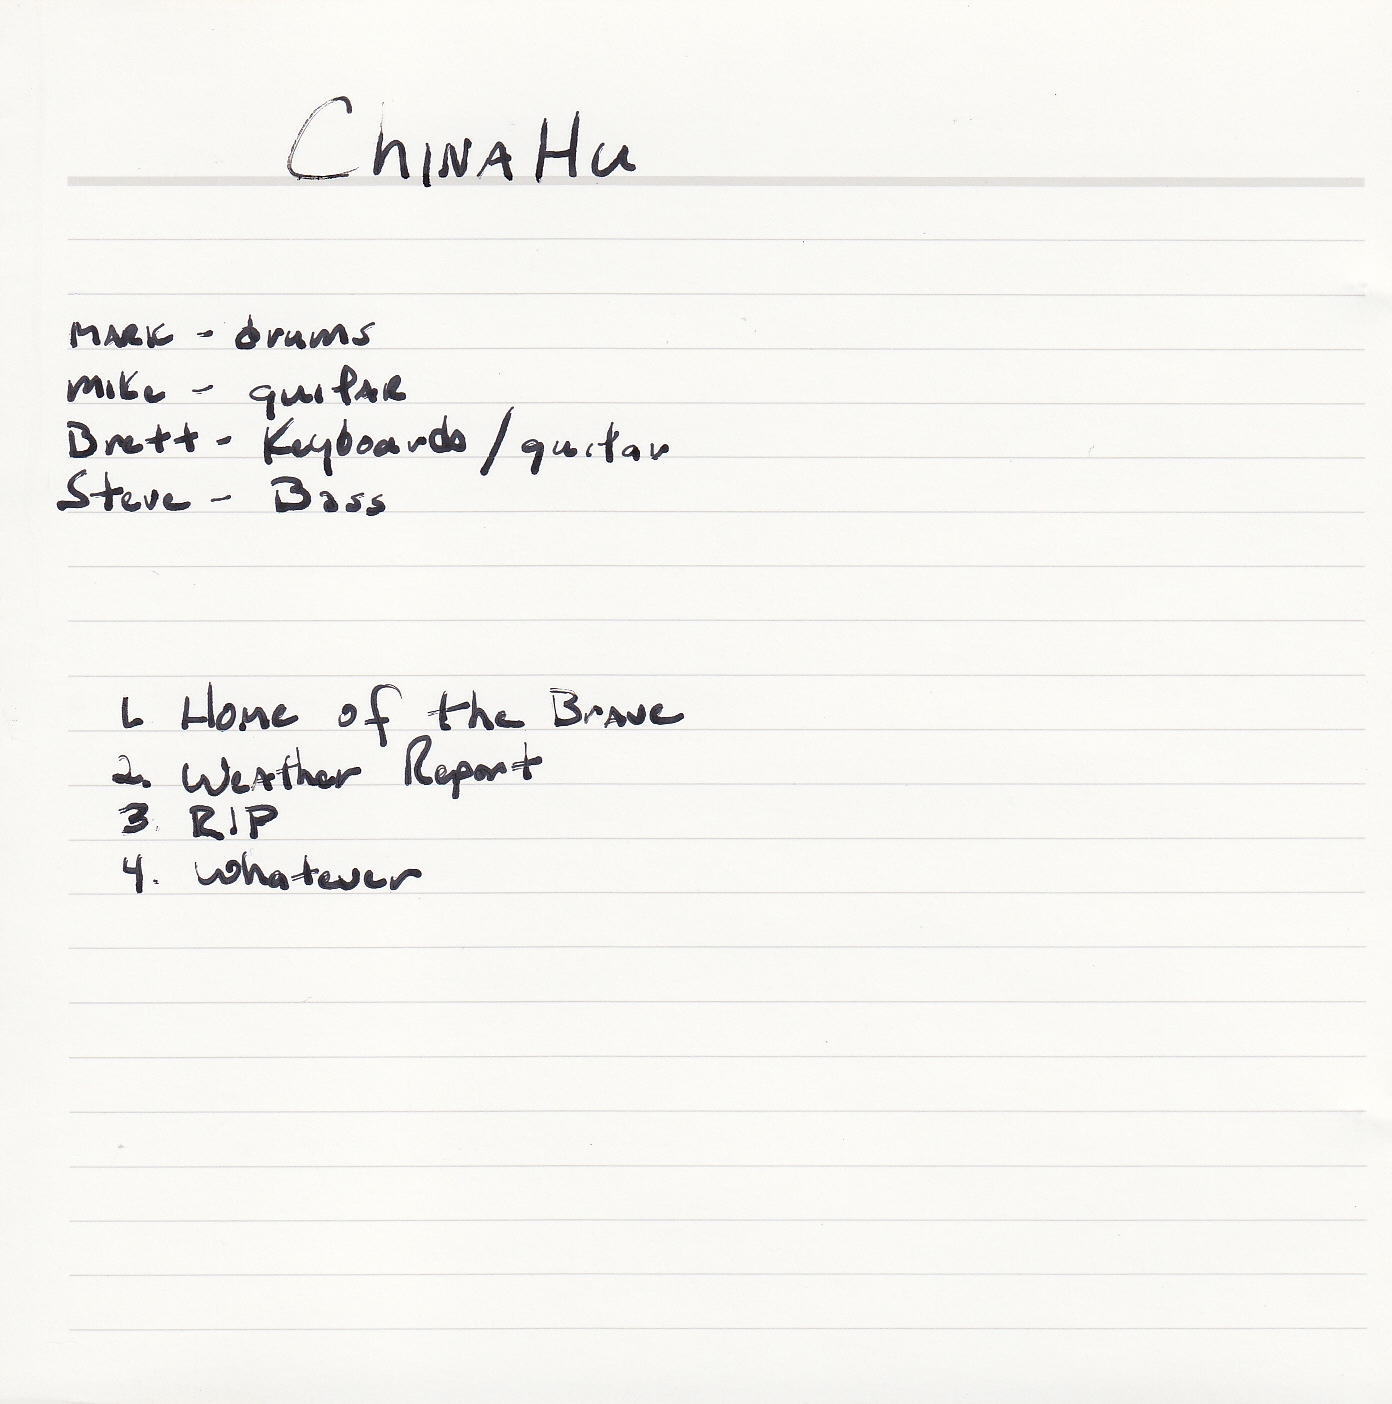 ChinaHu
MARK - drums
Mike - guitAR
Brett - Keyboards / guitar
Steve - Bass
1. Home of the Brave
2. Weather Report
3. RIP
4. Whatever